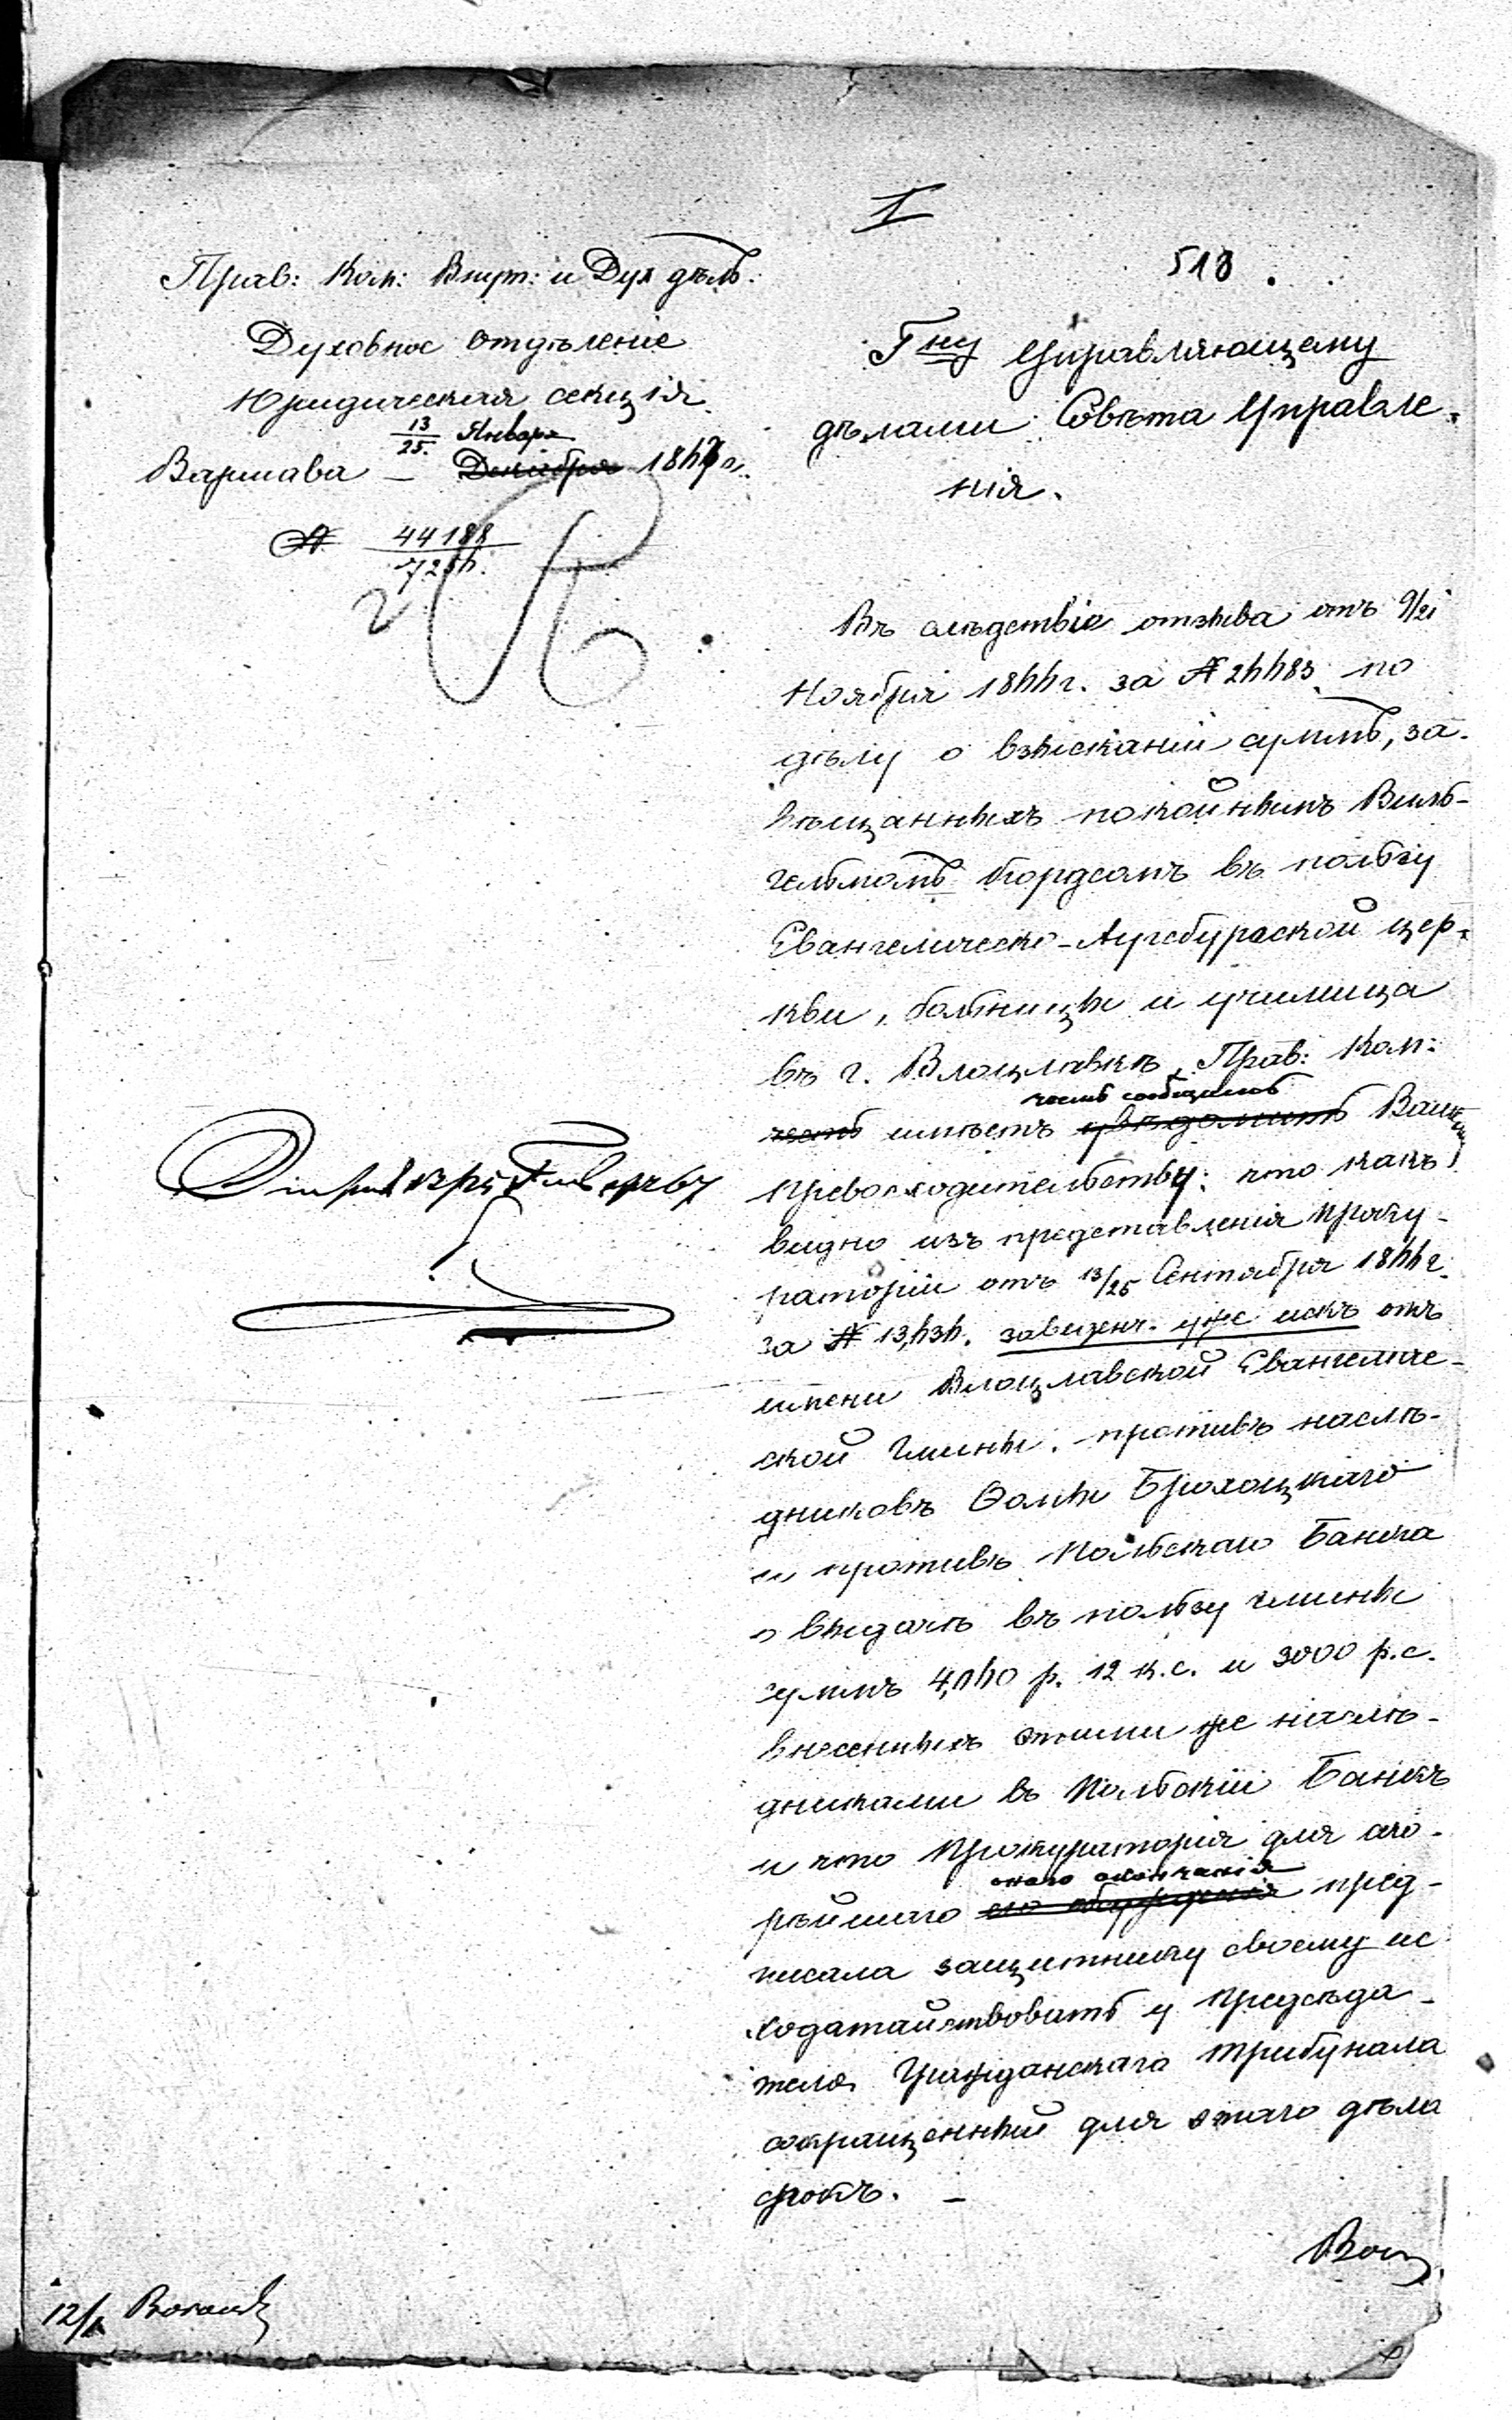 I
518.
Прав: Ком: Внут: и Дух дѣлъ:
Духовное отдѣленіе
Юридическая секція
13/25. Января
Варшава — Декабря 1845 г.
№ 44188/7254.
Гну Управляющему
дѣлами Совѣта Управле-
нія.
Въ слѣдствіе отзыва отъ 9/21
Ноября 1844 г. за № 24483. по
дѣлу о взысканіи суммъ, за-
вѣщанныхъ покойнымъ Виль-
гельмомъ въ пользу
Евангелическо-Аугсбургской цер-
кви, больницы и училища
въ г. Влоцлавкѣ, Прав: Ком:
честь сообщить
честь имѣетъ увѣдомить Ваше
Превосходительству: что какъ
видно изъ представленія Проку-
раторіи отъ 13/25 Сентября 1844 г.
за № 13,434. завед. уже искъ отъ
имени Влоцлавской Евангеличе-
ской Гмины. противъ наслѣ-
дниковъ Ѳомы Брохоцкаго
и противъ Польскаго Банка
о выдачѣ въ пользу гмины
суммъ р. 12 к.с. и 3000 р.с.
внесенныхъ этими же наслѣ-
дниками въ Польскій Банкъ
и что Прокураторія для ско-
онаго окончанія
рѣйшаго его обсужденія пред-
писала защитнику своему ис
ходатайствовать у Предсѣда-
теля Гражданскаго Трибунала
сокращенный для этаго дѣла
срокъ. —
12/1